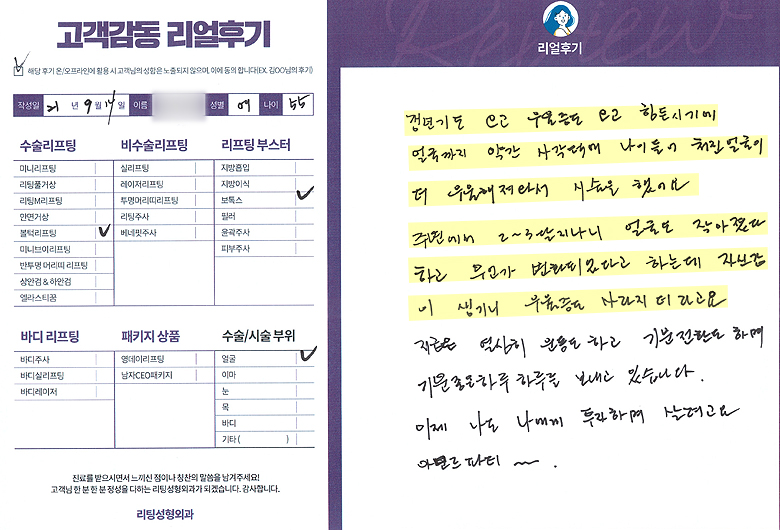 고객감동 리얼후기
해당 후기 온/오프라인에 활용 시 고객님의 성함은 노출되지 않으며, 이에 동의 합니다(EX. 김OO님의 후기)
작성일 21 년 9월 14일 이름 성별 여 나이 55
수술리프팅
미니리프팅
리팅풀거상
리팅M리프팅
안면거상
볼턱리프팅
미니브이리프팅
반투명 머리띠 리프팅
상안검 & 하안검
엘라스티꿈
비수술리프팅
실리프팅
레이저리프팅
투명머리띠리프팅
리팅주사
베네핏주사
리프팅 부스터
지방흡입
지방이식
보톡스
필러
윤곽주사
피부주사
바디 리프팅
바디주사
바디실리프팅
바디레이저
패키지 상품
영데이리프팅
남자CEO패키지
수술/시술 부위
얼굴
이마
눈
목
바디
기타 ( )
진료를 받으시면서 느끼신 점이나 칭찬의 말씀을 남겨주세요!
고객님 한 분 한 분 정성을 다하는 리팅성형외과가 되겠습니다. 감사합니다.
리팅성형외과
Review
리얼후기
갱년기도 오고 우울증도 오고 힘든시기에
얼굴까지 약간 사각턱에 나이들어 처진얼굴이
더 우울해져와서 시술을 했어요
주변에서 2~3달지나니 얼굴도 작아졌다
하고 무언가 변화되었다고 하는데 자신감
이 생기니 우울증도 사라지더라고요
지금은 열심히 운동도 하고 기분전환도 하며
기분좋은하루 하루를 보내고 있습니다.
이제 나도 나에게 투자하며 살려고요
아모르파티 ~.